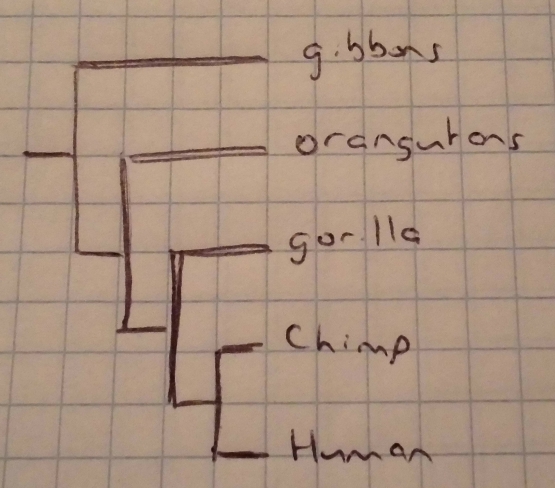 gibbons
orangutans
gorilla
Chimp
Human